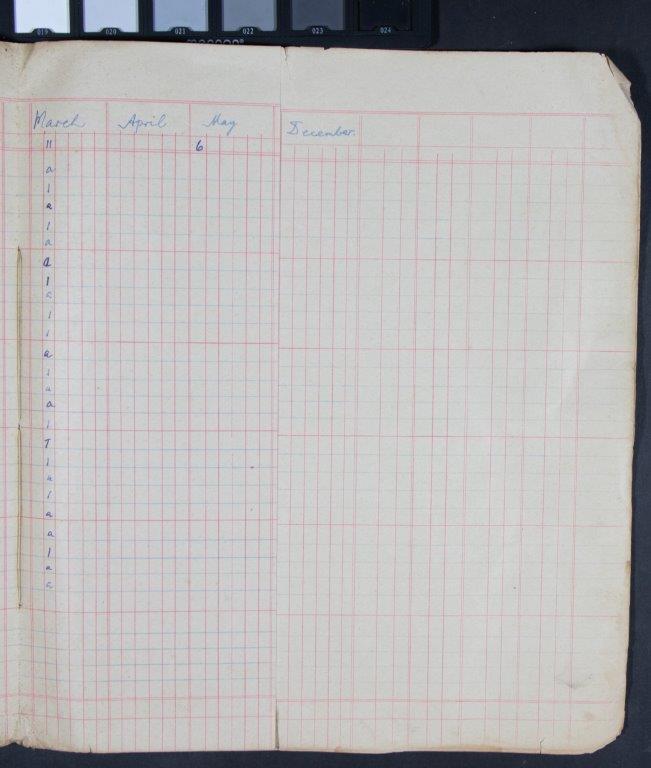 019 020 021 022 023 024
March April May December.
11 6
a
1
a
1
a
a
1
a
1
1
a
1
a
a
1
T
1
a
1
a
a
1
a
a